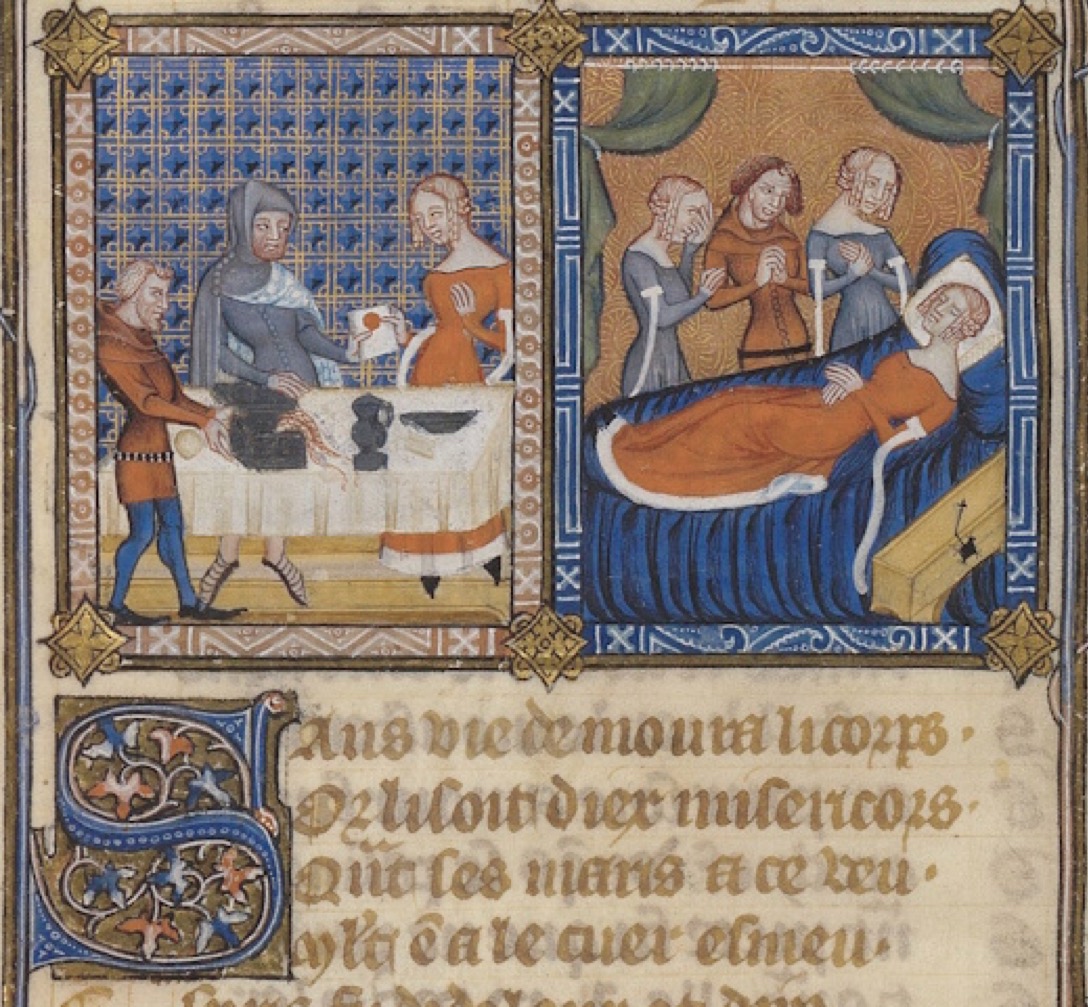 Sans vie demoura li corps ·
Or li soit diex misericors ·
Qn̄t ses maris a ce veu ·
Mlt ē a le cuer esmeu ·